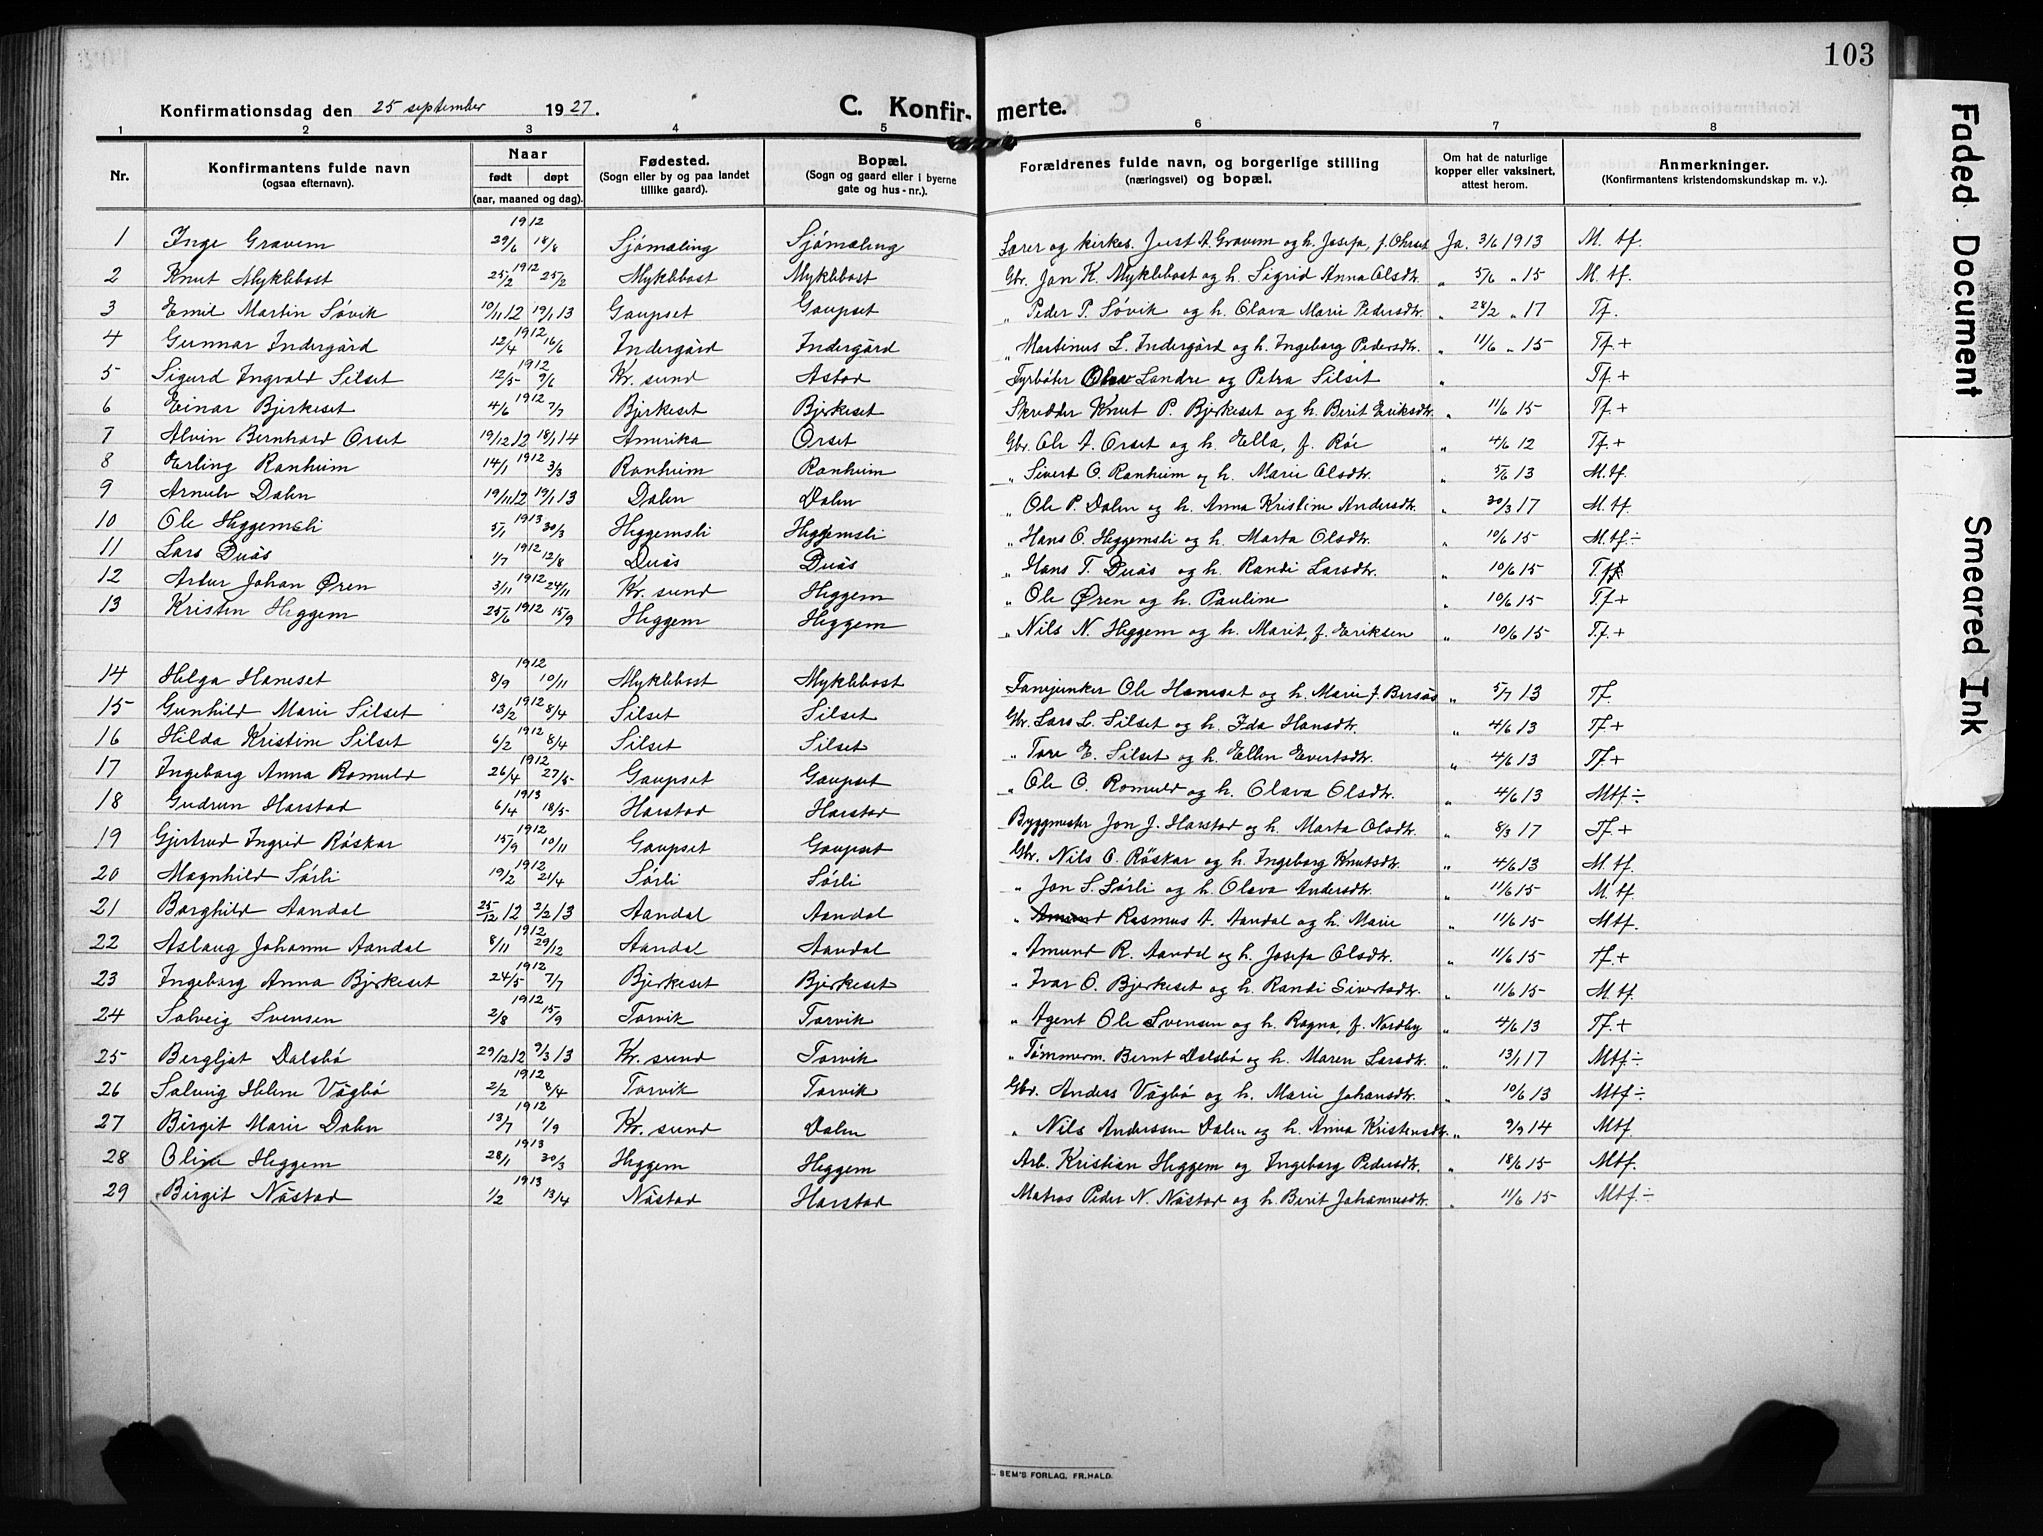 103
Konfirmationsdag den 25 september 1927.
C. Konfir- merte.
1 2 3 4 5 6 7 8
Nr. Konfirmantens fulde navn (ogsaa efternavn). Naar født døpt (aar, maaned og dag). Fødested. (Sogn eller by og paa landet tillike gaard). Bopæl. (Sogn og gaard eller i byerne gate og hus-nr.). Forældrenes fulde navn, og borgerlige stilling (næringsvei) og bopæl. Om hat de naturlige kopper eller vaksinert, attest herom. Anmerkninger. (Konfirmantens kristendomskundskap m. v.).
1 Inge Gravem 1912 29/6 18/8 Sjømæling Sjømæling Lærer og kirkes. Just A. Gravem og h. Josefa, f. Ohrset Ja. 3/6 1913 M. tf.
2 Knut Myklebost 1912 25/2 25/2 Myklebost Myklebost Gbr. Jon K. Myklebost og h. Sigrid Anna Olsdtr. " 5/6 " 15 M. tf.
3 Emil Martin Søvik 10/11 12 19/1 13 Gaupset Gaupset " Peder P. Søvik og h. Olava Marie Pedersdtr. " 28/2 " 17 Tf.
4 Gunnar Indergård 1912 12/4 16/6 Indergård Indergård " Martinus L. Indergård og h. Ingeborg Pedersdtr. " 11/6 " 15 Tf. +
5 Sigurd Ingvald Silset 1912 12/5 9/6 Kr. sund Astad Fyrbøter Olav Landre og Petra Silset " Tf. +
6 Einar Bjerkeset 1912 4/6 7/7 Bjerkeset Bjerkeset Skredder Knut P. Bjerkeset og h. Berit Eriksdtr. " 11/6 15 Tf. +
7 Alvin Bernhard Orset 19/12 12 18/1 14 Amerika Orset Gbr. Ole A. Orset og h. Ella, f. Røe " 4/6 12 Tf. +
8 Erling Ranheim 1912 14/1 3/3 Ranheim Ranheim " Sivert O. Ranheim og h. Marie Olsdtr. " 5/6 13 M. tf.
9 Arnulv Dalen 19/11 12 19/1 13 Dalen Dalen " Ole P. Dalen og h. Anna Kristine Andersdtr. " 30/3 17 M. tf.
10 Ole Heggemsli 1913 5/1 30/3 Heggemsli Heggemsli " Hans O. Heggemsli og h. Marta Olsdtr. " 10/6 15 M. tf ÷
11 Lars Duås 1912 1/7 12/8 Duås Duås " Hans T. Duås og h. Randi Larsdtr. " 10/6 15 T.f
12 Artur Johan Øren 1912 3/11 24/11 Kr. sund Heggem " Ole Øren og h. Pauline " 10/6 15 T.f +
13 Kristen Heggem 1912 25/6 15/9 Heggem Heggem " Nils N. Heggem og h. Marit, f. Eriksen " 10/6 15 T.f. +
14 Helga Haneset 1912 8/9 10/11 Myklebost Myklebost Fanejunker Ole Haneset og h. Marie f. Bersås " 5/7 13 Tf.
15 Gunhild Marie Silset 1912 13/2 8/4 Silset Silset Gbr. Lars L. Silset og h. Ida Hansdtr. " 4/6 13 Tf. +
16 Hilda Kristine Silset 1912 6/2 8/4 Silset Silset " Tore E. Silset og h. Ellen Evertsdtr. " 4/6 13 Tf. +
17 Ingeborg Anna Romuld 1912 26/4 27/5 Gaupset Gaupset " Ole O. Romuld og h. Olava Olsdtr. " 4/6 13 Mtf ÷
18 Gudrun Harstad 1913 6/4 18/5 Harstad Harstad Byggmester Jon J. Harstad og h. Marta Olsdtr. " 8/3 17 Tf. +
19 Gjertrud Ingrid Røskar 1912 15/9 10/11 Gaupset Gaupset Gbr. Nils O. Røskar og h. Ingeborg Knutsdtr. " 4/6 13 M. tf.
20 Magnhild Sørli 1912 19/2 21/4 Sørli Sørli " Jon S. Sørli og h. Olava Andersdtr. " 11/6 15 M. tf.
21 Borghild Aandal 25/12 12 2/2 13 Aandal Aandal " Amund Rasmus A. Aandal og h. Marie " 11/6 15 Mtf.
22 Aslaug Johanne Aandal 1912 8/11 29/12 Aandal Aandal " Amund R. Aandal og h. Josefa Olsdtr. " 11/6 15 Tf. +
23 Ingeborg Anna Bjerkeset 1912 24/5 7/7 Bjerkeset Bjerkeset " Ivar O. Bjerkeset og h. Randi Sivertsdtr. " 11/6 15 M. tf.
24 Solveig Svensen 1912 2/8 15/9 Torvik Torvik " Agent Ole Svensen og h. Ragna, f. Nordby " 4/6 13 Tf. +
25 Bergljot Dalsbø 29/12 12 9/3 13 Kr. sund Torvik " Tømmerm. Bernt Dalsbø og h. Maren Larsdtr. " 13/1 17 Mtf ÷
26 Solveig Helene Vågbø 1912 2/2 8/4 Torvik Torvik Gbr. Anders Vågbø og h. Marie Johansdtr. " 10/6 13 Mtf ÷
27 Birgit Marie Dalen 1912 13/7 1/9 Kr. sund Dalen " Nils Anderssen Dalen og h. Anna Kristensdtr. " 9/9 14 Mtf.
28 Oline Heggem 1913 28/1 30/3 Heggem Heggem Arb. Kristian Heggem og Ingeborg Pedersdtr. " 18/6 15 Mtf.
29 Birgit Nåstad 1913 1/2 13/4 Nåstad Harstad Matros Peder N. Nåstad og h. Berit Johannesdtr. " 11/6 15 Mtf. ÷
SEM'S FORLAG, FR.HALD.
Faded Document
Smeared Ink